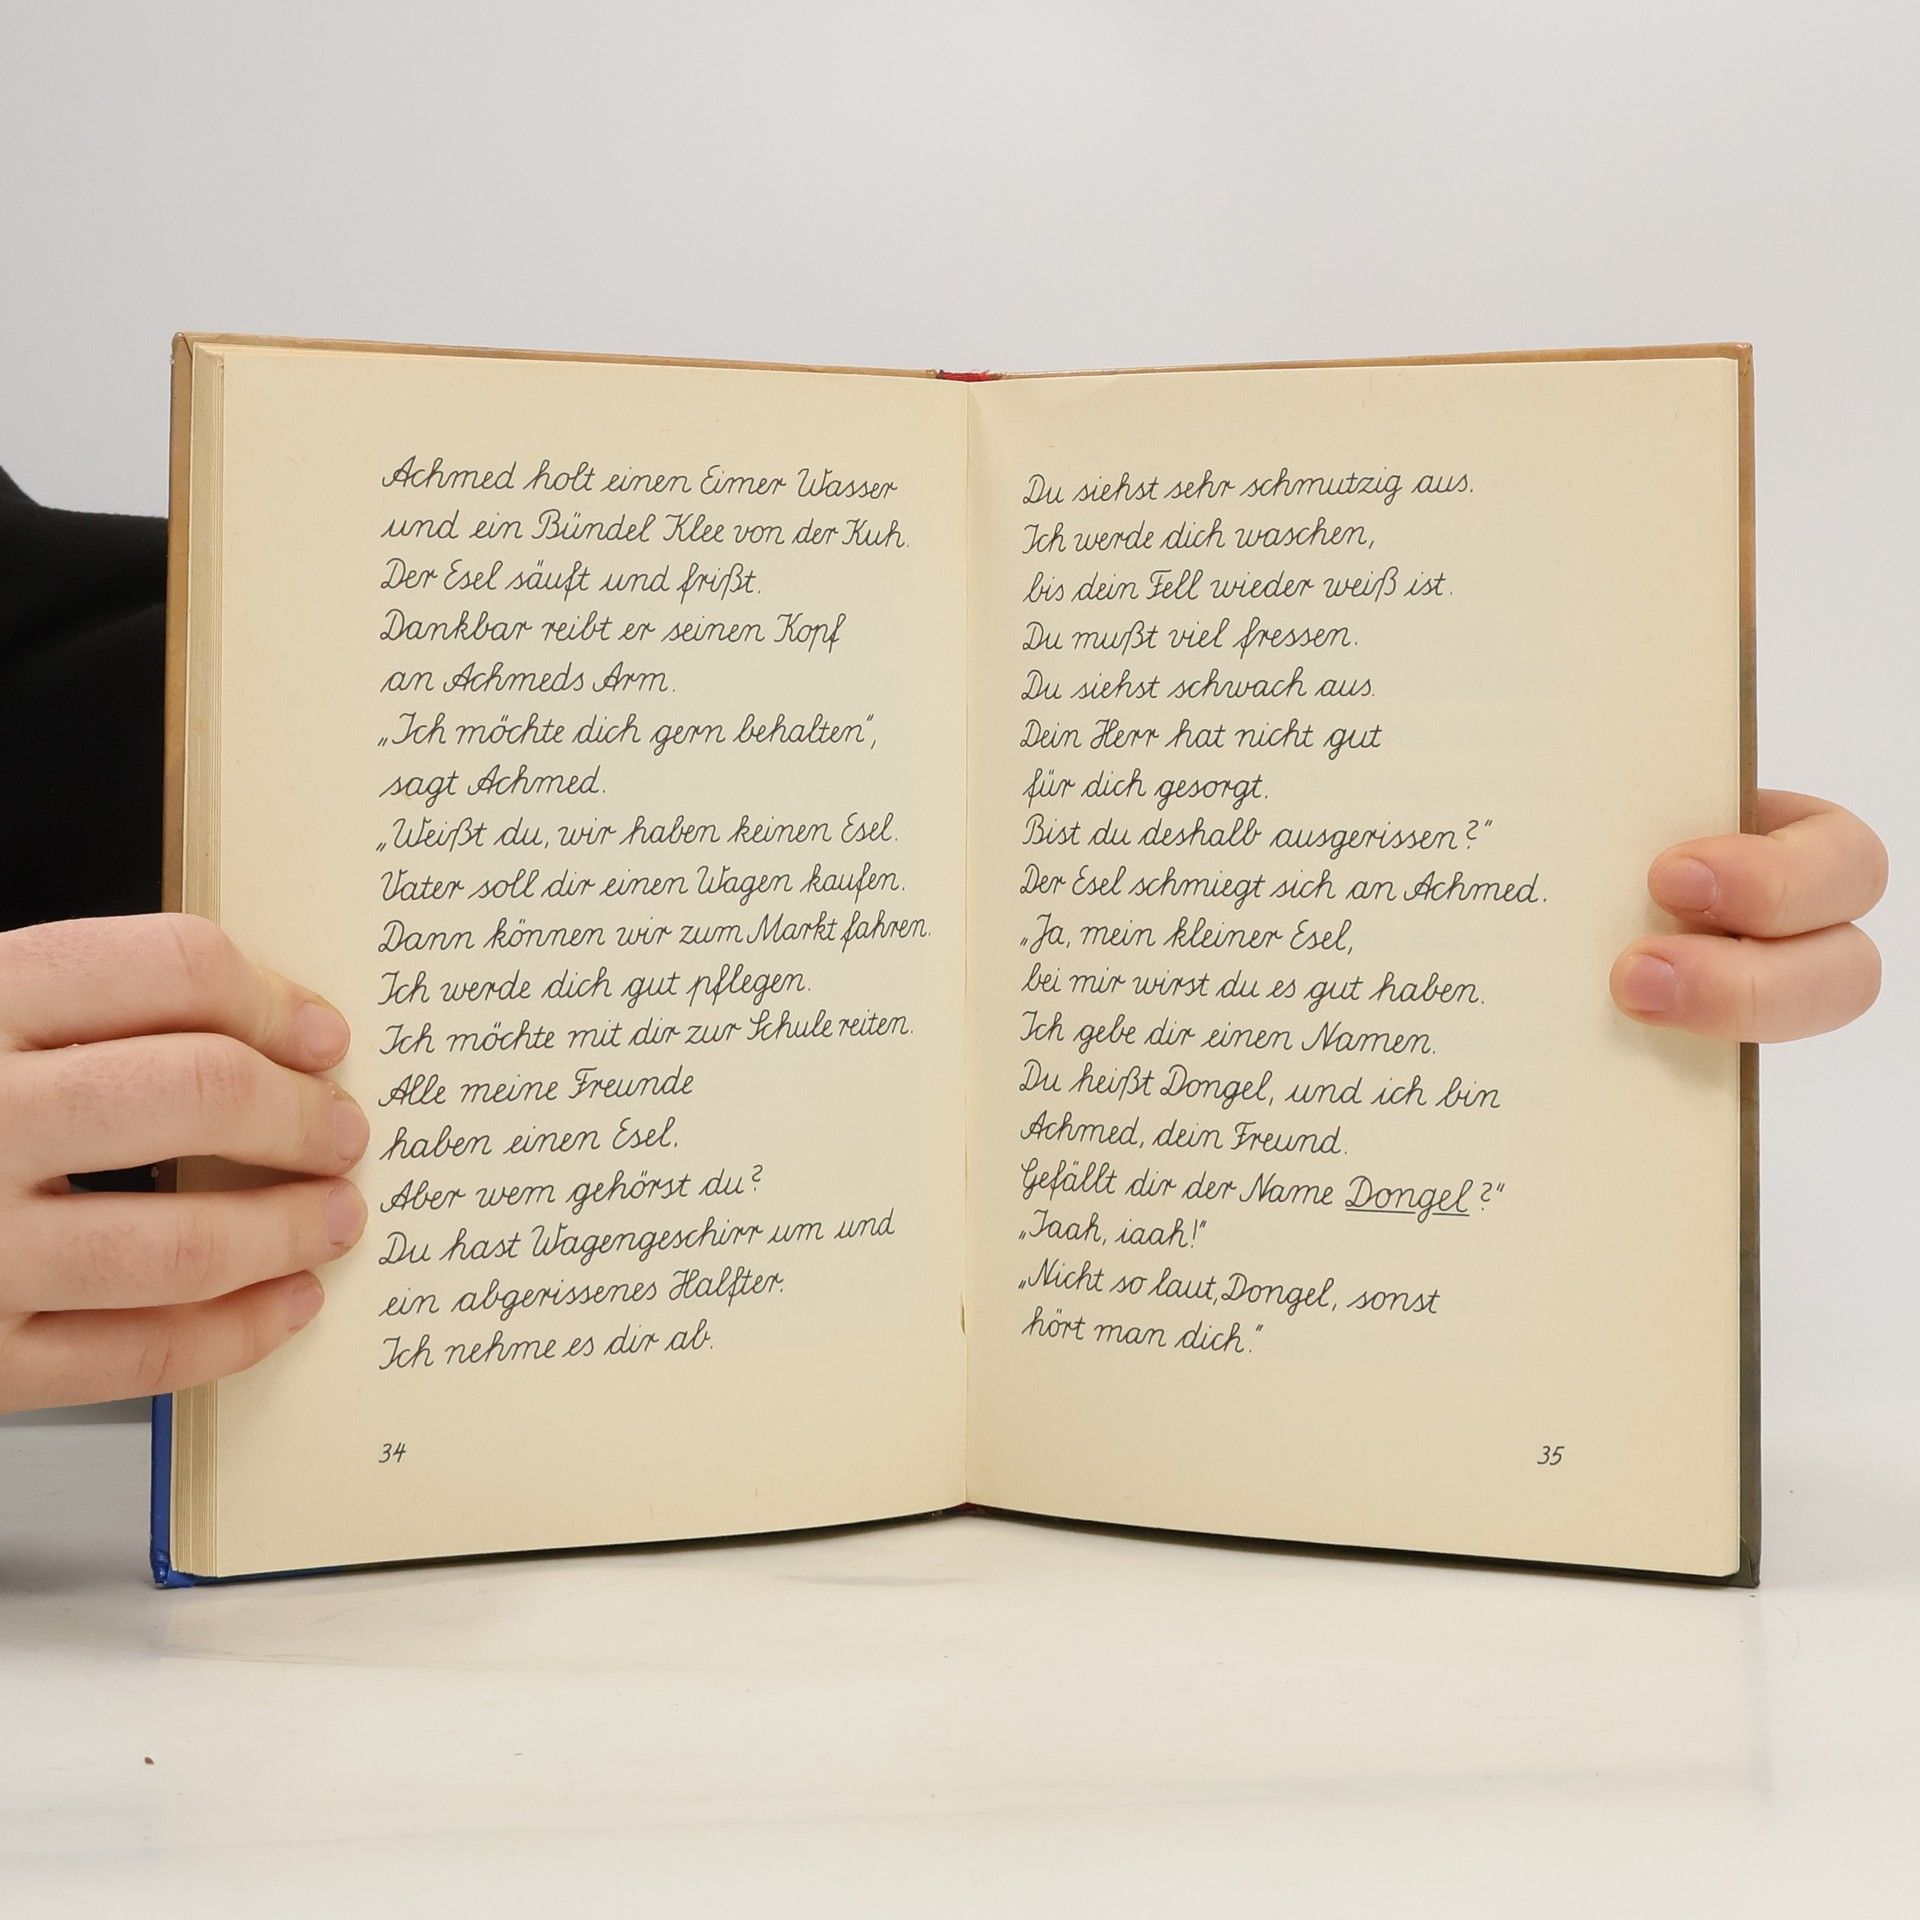 Achmed holt einen Eimer Wasser
und ein Bündel Klee von der Kuh.
Der Esel säuft und frißt.
Dankbar reibt er seinen Kopf
an Achmeds Arm.
„Ich möchte dich gern behalten“,
sagt Achmed.
„Weißt du, wir haben keinen Esel.
Vater soll dir einen Wagen kaufen.
Dann können wir zum Markt fahren.
Ich werde dich gut pflegen.
Ich möchte mit dir zur Schule reiten.
Alle meine Freunde
haben einen Esel.
Aber wem gehörst du?
Du hast Wagengeschirr um und
ein abgerissenes Halfter.
Ich nehme es dir ab.
34
Du siehst sehr schmutzig aus.
Ich werde dich waschen,
bis dein Fell wieder weiß ist.
Du mußt viel fressen.
Du siehst schwach aus.
Dein Herr hat nicht gut
für dich gesorgt.
Bist du deshalb ausgerissen?“
Der Esel schmiegt sich an Achmed.
„Ja, mein kleiner Esel,
bei mir wirst du es gut haben.
Ich gebe dir einen Namen.
Du heißt Dongel, und ich bin
Achmed, dein Freund.
Gefällt dir der Name Dongel?“
„Iaah, iaah!“
„Nicht so laut, Dongel, sonst
hört man dich.“
35